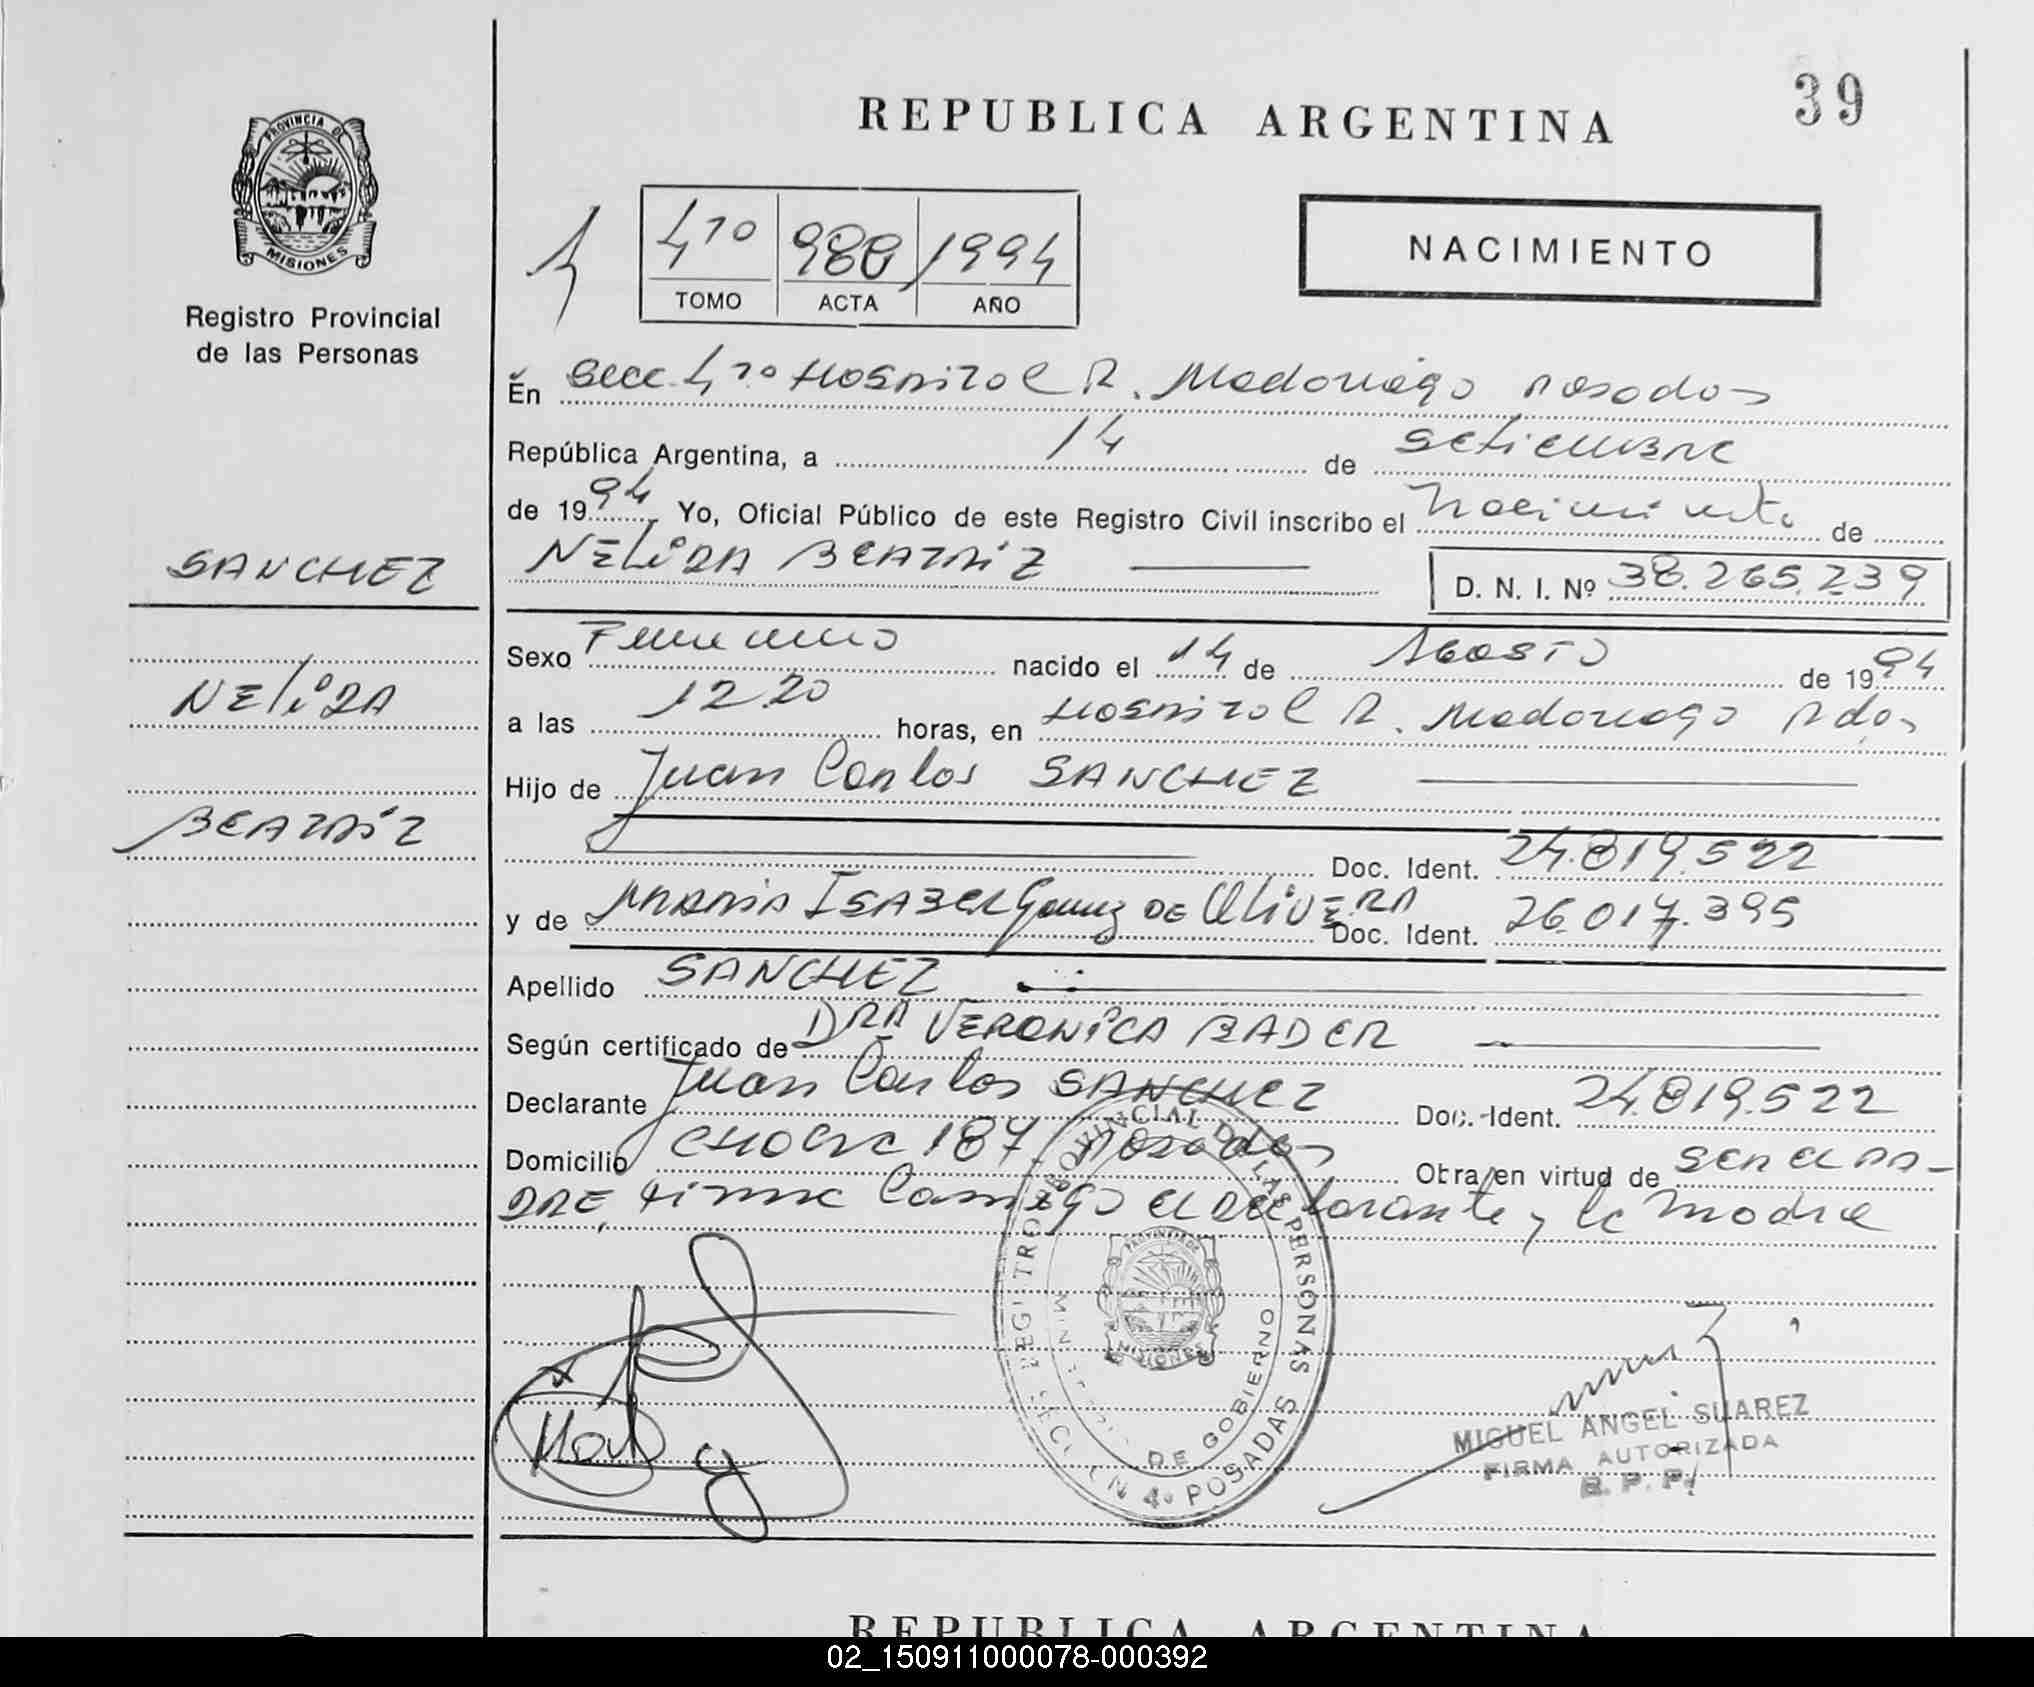 39
REPUBLICA ARGENTINA
PROVINCIA DE
MISIONES
Registro Provincial
de las Personas
4to 980 1994
TOMO ACTA AÑO
NACIMIENTO
En Secc. 4ta Hospital R. Madariaga Posadas
República Argentina, a 14 de Setiembre
de 1994 Yo, Oficial Público de este Registro Civil inscribo el Nacimiento de
SANCHEZ
NELIDA BEATRIZ
D. N. I. Nº 38.265.239
Sexo Femenino nacido el 14 de Agosto de 1994
NELIDA
a las 12.20 horas, en Hospital R. Madariaga Pdas
Hijo de Juan Carlos SANCHEZ
BEATRIZ
Doc. Ident. 24.819.522
y de MARIA ISABEL Gomez DE OLIVERA Doc. Ident. 26.017.395
Apellido SANCHEZ
Según certificado de DRA VERONICA BADER
Declarante Juan Carlos SANCHEZ Doc. Ident. 24.819.522
Domicilio CHACRA 187 Posadas Obra en virtud de SER EL PA-
DRE, Firma Conmigo el declarante y la Madre
REGISTRO PROVINCIAL DE LAS PERSONAS
MINISTERIO DE GOBIERNO
PROVINCIA DE
MISIONES
SECCION 4º POSADAS
MIGUEL ANGEL SUAREZ
FIRMA AUTORIZADA
R. P. P.
REPUBLICA ARGENTINA
02_150911000078-000392